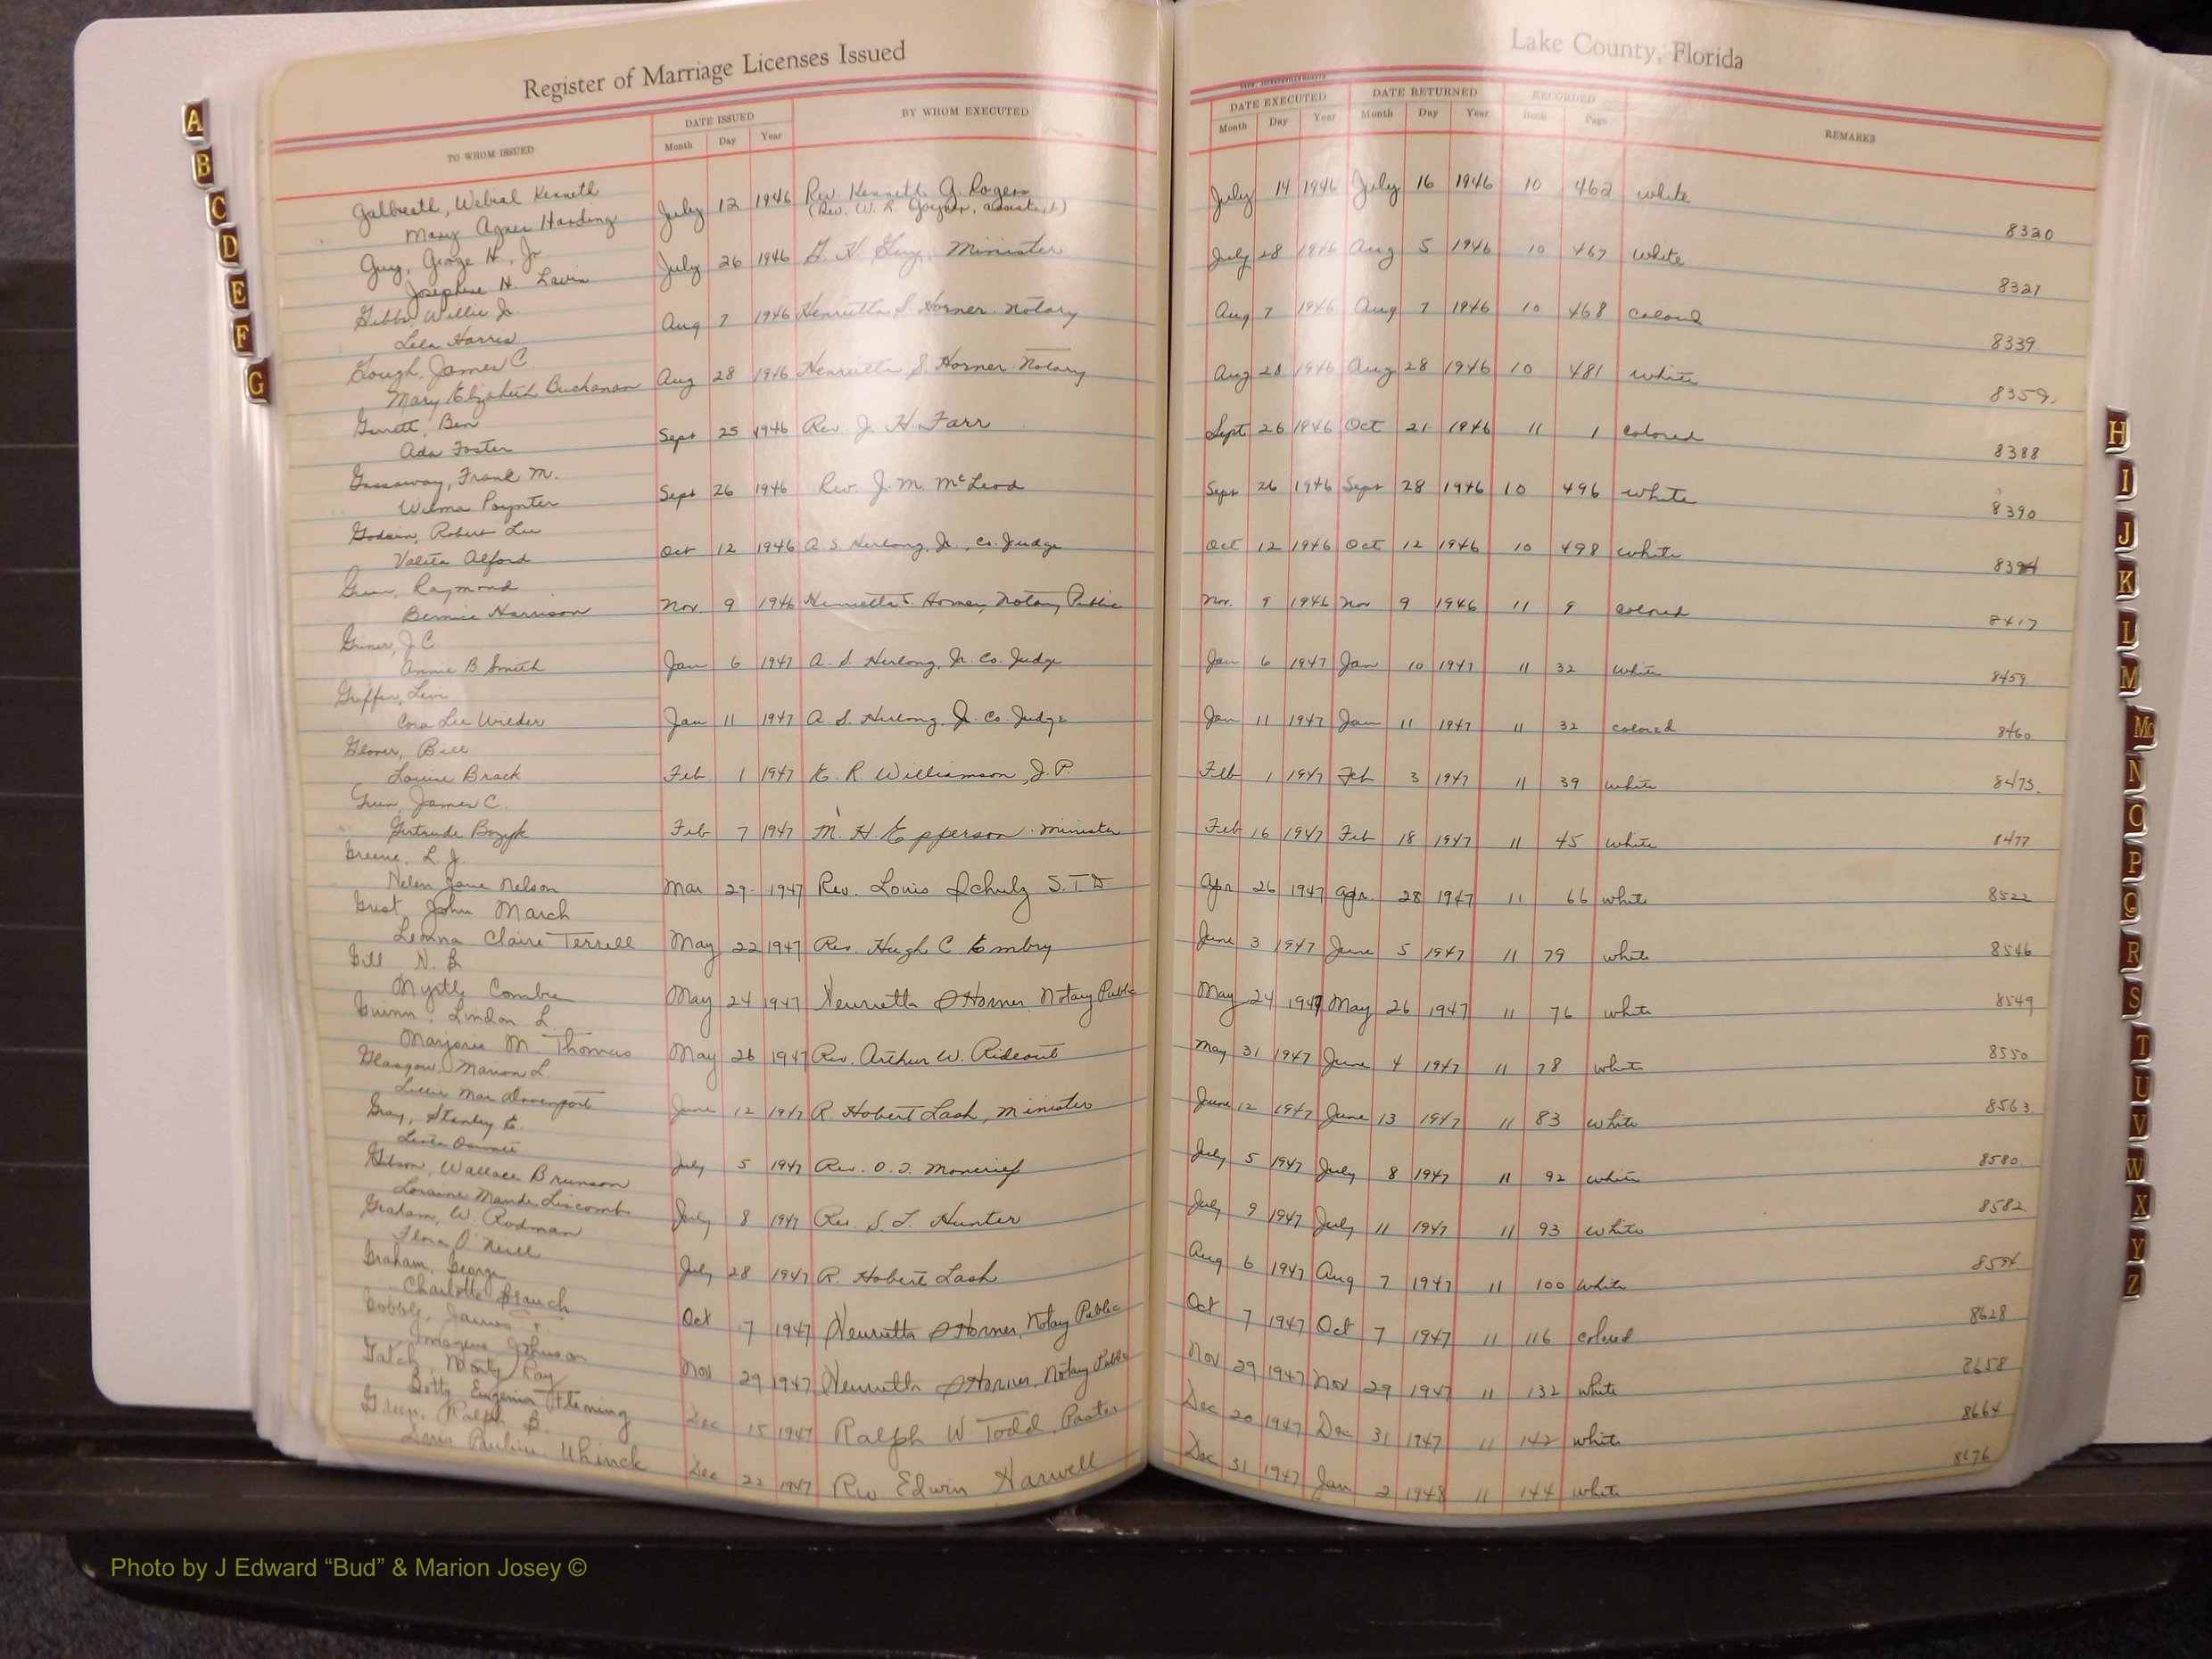 Register of Marriage Licenses Issued
Lake County, Florida
TO WHOM ISSUED
DATE ISSUED
Month Day Year
BY WHOM EXECUTED
DATE EXECUTED
Month Day Year
DATE RETURNED
Month Day Year
RECORDED
Book Page
REMARKS
Galbreath, Kenneth
Mary Agnes Harding July 12 1946 Rev. Kenneth G. Rogers July 14 1946 July 16 1946 10 462 white 8320
(Rev. W. R. assistant)
Guy, George H., Jr.
Josephine H. Lavin July 26 1946 G. H. Guy, Minister July 28 1946 Aug 5 1946 10 467 white 8327
Gibbs, Willie Jr.
Lela Harris Aug 7 1946 Henrietta S. Horner Notary Aug 7 1946 Aug 7 1946 10 468 colored 8339
Gough, James C.
Mary Elizabeth Buchanan Aug 28 1946 Henrietta S. Horner Notary Aug 28 1946 Aug 28 1946 10 481 white 8359.
Garrett, Ben
Ada Foster Sept 25 1946 Rev. J. H. Farr Sept 26 1946 Oct 21 1946 11 1 colored 8388
Gassaway, Frank M.
Wilma Poynter Sept 26 1946 Rev. J. M. McLeod Sept 26 1946 Sept 28 1946 10 496 white 8390
Godwin, Robert Lee
Valita Alford Oct 12 1946 A. S. Herlong, Jr., Co. Judge Oct 12 1946 Oct 12 1946 10 498 white 8394
Green, Raymond
Bernice Harrison Nov. 9 1946 Henrietta S. Horner, Notary Public Nov. 9 1946 Nov 9 1946 11 9 colored 8417
Griner, J. C.
Annie B Smith Jan 6 1947 A. S. Herlong, Jr. Co. Judge Jan 6 1947 Jan 10 1947 11 32 white 8459
Griffin, Levi
Cora Lee Wilder Jan 11 1947 A. S. Herlong, Jr. Co. Judge Jan 11 1947 Jan 11 1947 11 32 colored 8460
Glover, Bill
Louise Brack Feb. 1 1947 E. R. Williamson, J. P. Feb 1 1947 Feb 3 1947 11 39 white 8473.
Green, James C.
Gertrude Bozyk Feb 7 1947 M. H. Epperson. Minister Feb 16 1947 Feb 18 1947 11 45 white 8477
Greene, L. J.
Helen Jane Nelson Mar 29 1947 Rev. Louis Schulz S.T.D Apr 26 1947 Apr. 28 1947 11 66 white 8522
Grest, John March
Leonna Claire Terrell May 22 1947 Rev. Hugh C. Embry June 3 1947 June 5 1947 11 79 white 8546
Gill N. B
Myrtle Combre May 24 1947 Henrietta S Horner Notary Public May 24 1947 May 26 1947 11 76 white 8549
Guinn, Lindon L.
Marjorie M. Thomas May 26 1947 Rev. Arthur W. Rideout May 31 1947 June 4 1947 11 78 white 8550
Glasgow, Marion L.
Lillie Mae Davenport June 12 1947 R. Hobert Lash, Minister June 12 1947 June 13 1947 11 83 white 8563
Gray, Stanley E.
July 5 1947 Rev. O. J. Moncrief July 5 1947 July 8 1947 11 92 white 8580
Gibson, Wallace Brunson
Loraine Maude Liscomb July 8 1947 Rev. S. L. Hunter July 9 1947 July 11 1947 11 93 white 8582
Graham, W. Rodman
Flora O'Neill July 28 1947 R. Hobert Lash Aug 6 1947 Aug 7 1947 11 100 white
Graham, George
Charlotte Branch Oct 7 1947 Henrietta S Horner, Notary Public Oct 7 1947 Oct 7 1947 11 116 colored 8628
James T.
Imogene Johnson Nov 29 1947 Henrietta S Horner, Notary Public Nov 29 1947 Nov 29 1947 11 132 white 8658
Gatch, Monty Ray
Betty Eugenia Fleming Dec 15 1947 Ralph W. Todd, Pastor Dec 20 1947 Dec 31 1947 11 142 white 8664
Ralph B.
Doris Pauline Uhinck Dec 22 1947 Rev Edwin Harwell Dec 31 1947 Jan 2 1948 11 144 white 8676
A
B
C
D
E
F
G
H
I
J
K
L
M
Mc
N
O
P
Q
R
S
T
U
V
W
X
Y
Z
Photo by J Edward “Bud” & Marion Josey ©